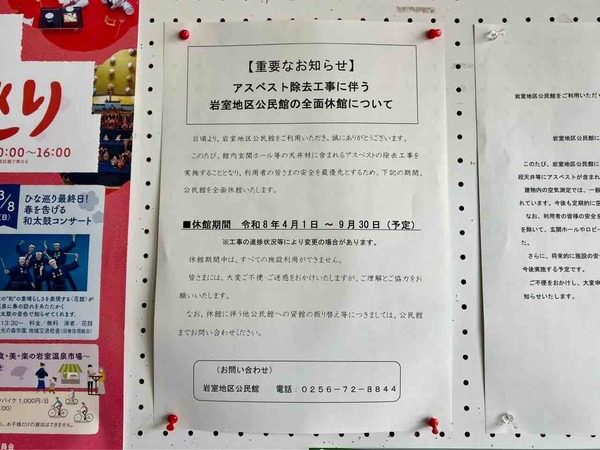 り
0:00～16:00
3/8
(日)
ひな巡り最終日!
春を告げる
和太鼓コンサート
の"和"の素晴らしさを表現する〈花鼓〉が
泉に春の訪れをあたたかく
太鼓の音色で知らせてくれます。
13:30～ 料金/無料 演者/花鼓
食・美・楽の岩室温泉市場～
バイク 1,000円/日
員会
【重要なお知らせ】
アスベスト除去工事に伴う
岩室地区公民館の全面休館について
日頃より、岩室地区公民館をご利用いただき、誠にありがとうございます。
このたび、館内玄関ホール等の天井材に含まれるアスベストの除去工事を
実施することとなり、利用者の皆さまの安全を最優先とするため、下記の期間、
公民館を全面休館いたします。
■休館期間 令和8年4月1日 ～ 9月30日（予定）
※工事の進捗状況等により変更の場合があります。
休館期間中は、すべての施設利用ができません。
皆さまには、大変ご不便・ご迷惑をおかけいたしますが、ご理解とご協力をお
願いいたします。
なお、休館に伴う他公民館への貸館の振り替え等につきましては、公民館
までお問い合わせください。
（お問い合わせ）
岩室地区公民館 電話：0256-72-8844
岩室地区公民館をご利用いただ
岩室地区公民館に
このたび、岩室地区公民館に
段天井等にアスベストが含まれ
建物内の空気測定では、一般
れています。今後も定期的に空
なお、利用者の皆様の安全を
を除いて、玄関ホールやロビー
た。
さらに、将来的に施設の安
今後実施する予定です。
ご不便をおかけし、大変
知らせいたします。